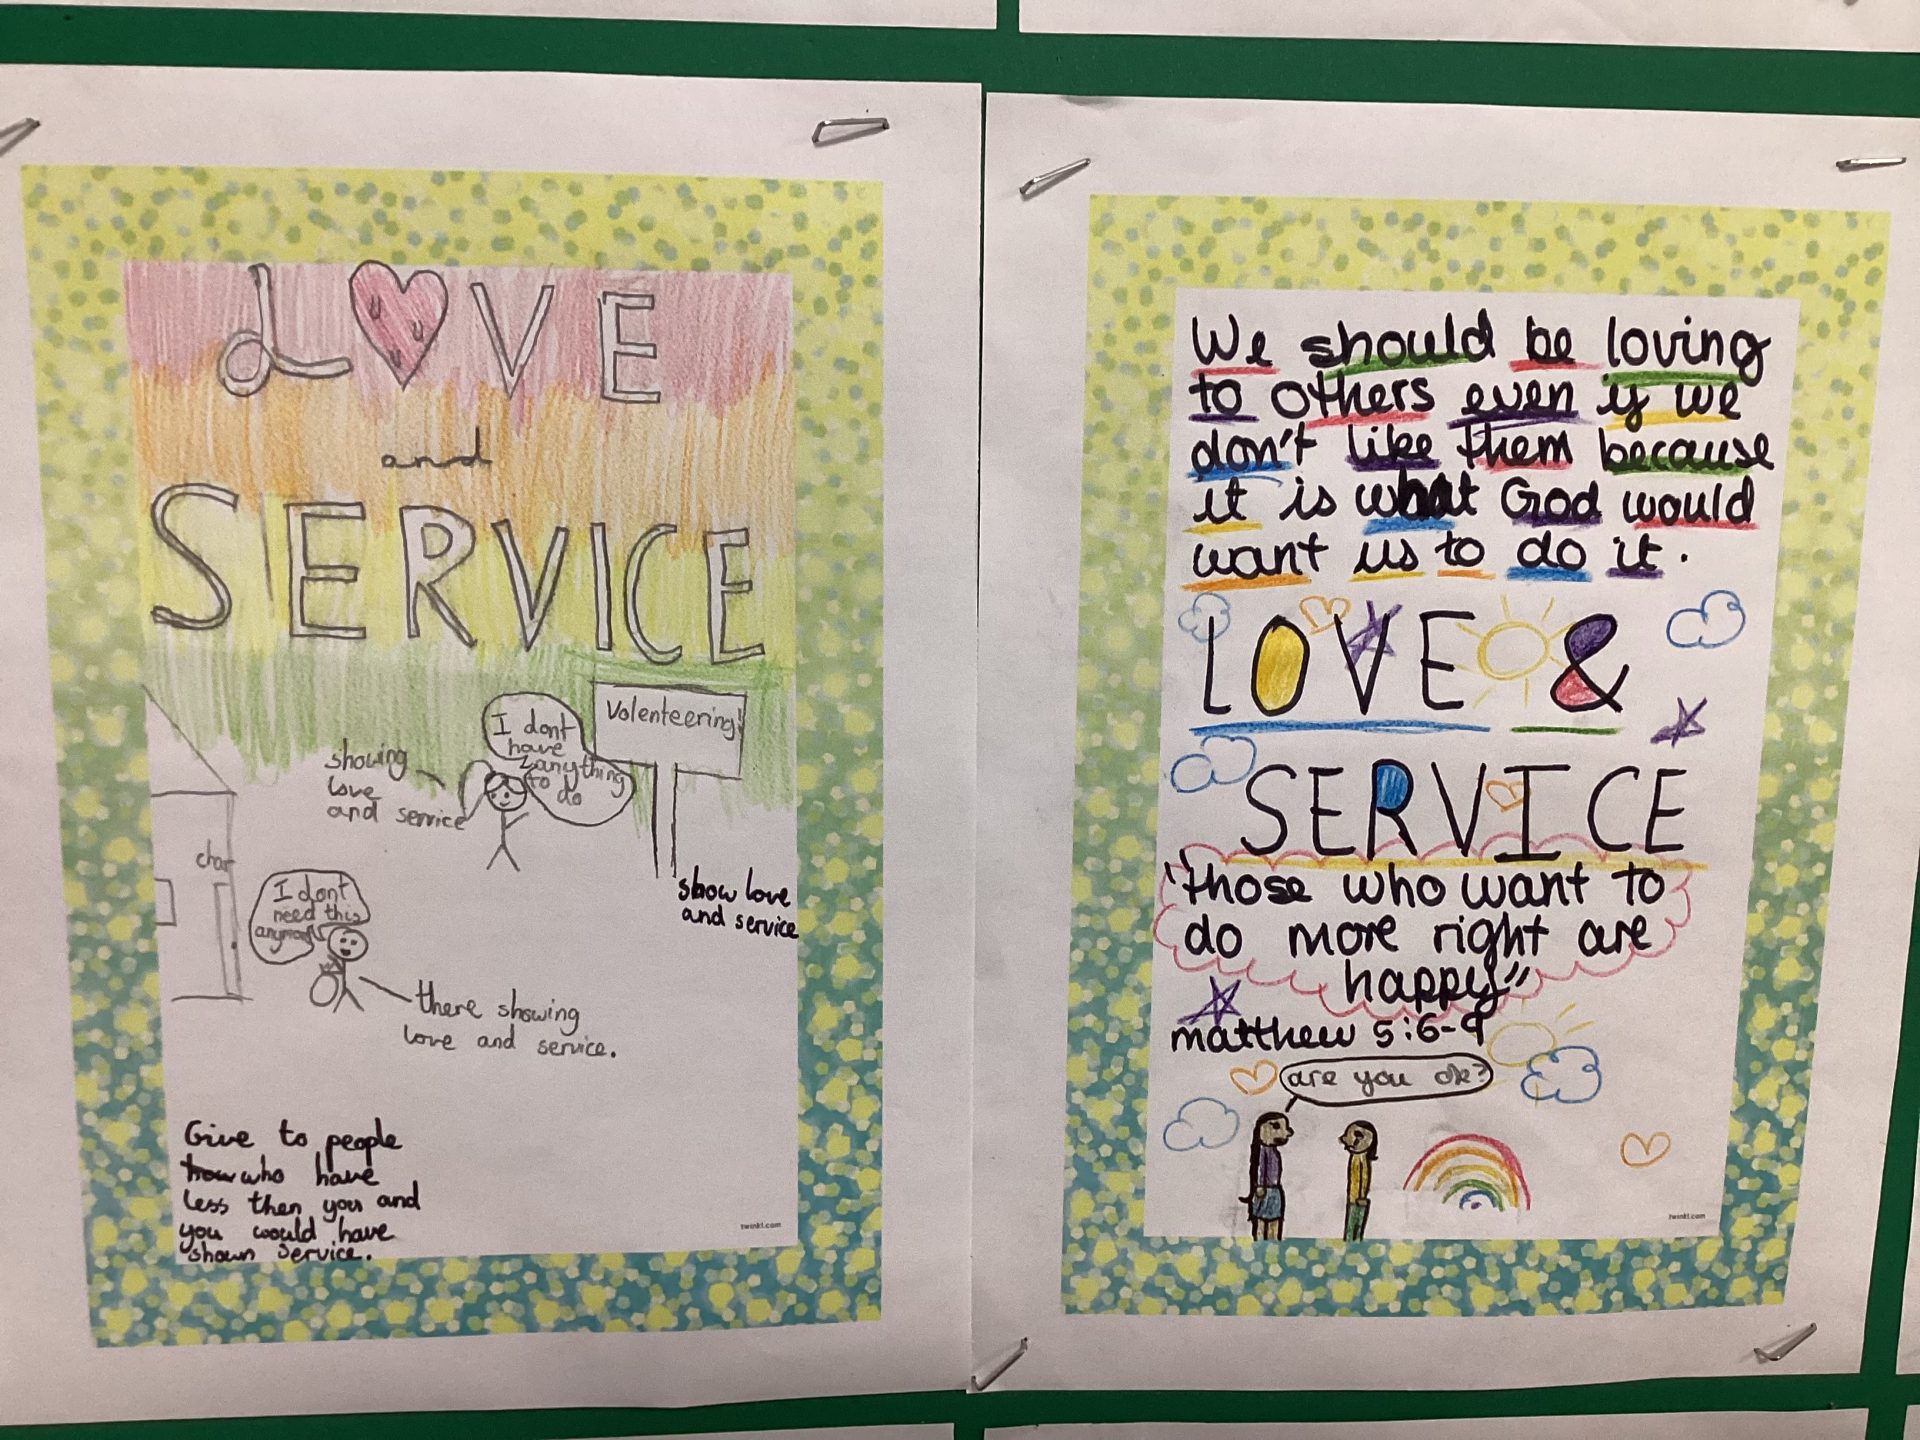 LOVE
and
SERVICE
Volenteering!
I dont
have
anything
to do
showing
love
and service
show love
and service
char
I dont
need this
there showing
love and service.
Give to people
who have
less then you and
you would have
shown service.
twinkl.com
We should be loving
to others even if we
don't like them because
it is what God would
want us to do it.
LOVE &
SERVICE
"those who want to
do more right are
happy"
matthew 5:6-9
are you ok?
twinkl.com